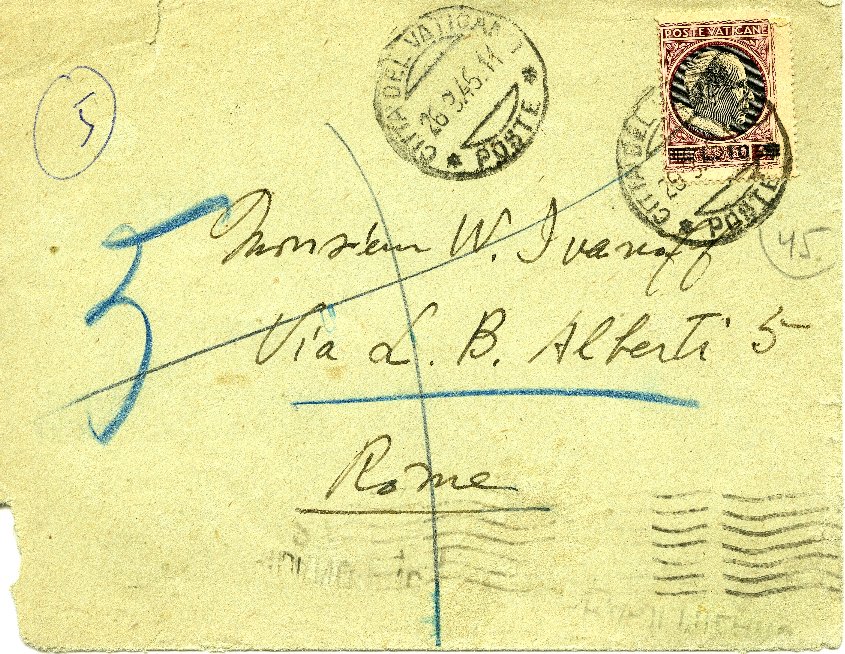 5
CITTÀ DEL VATICANO
26.9.45.11
* POSTE *
POSTE VATICANE
CITTÀ DEL
* POSTE
45.
5
Monsieur W. Ivanoff
Via L. B. Alberti 5
Rome